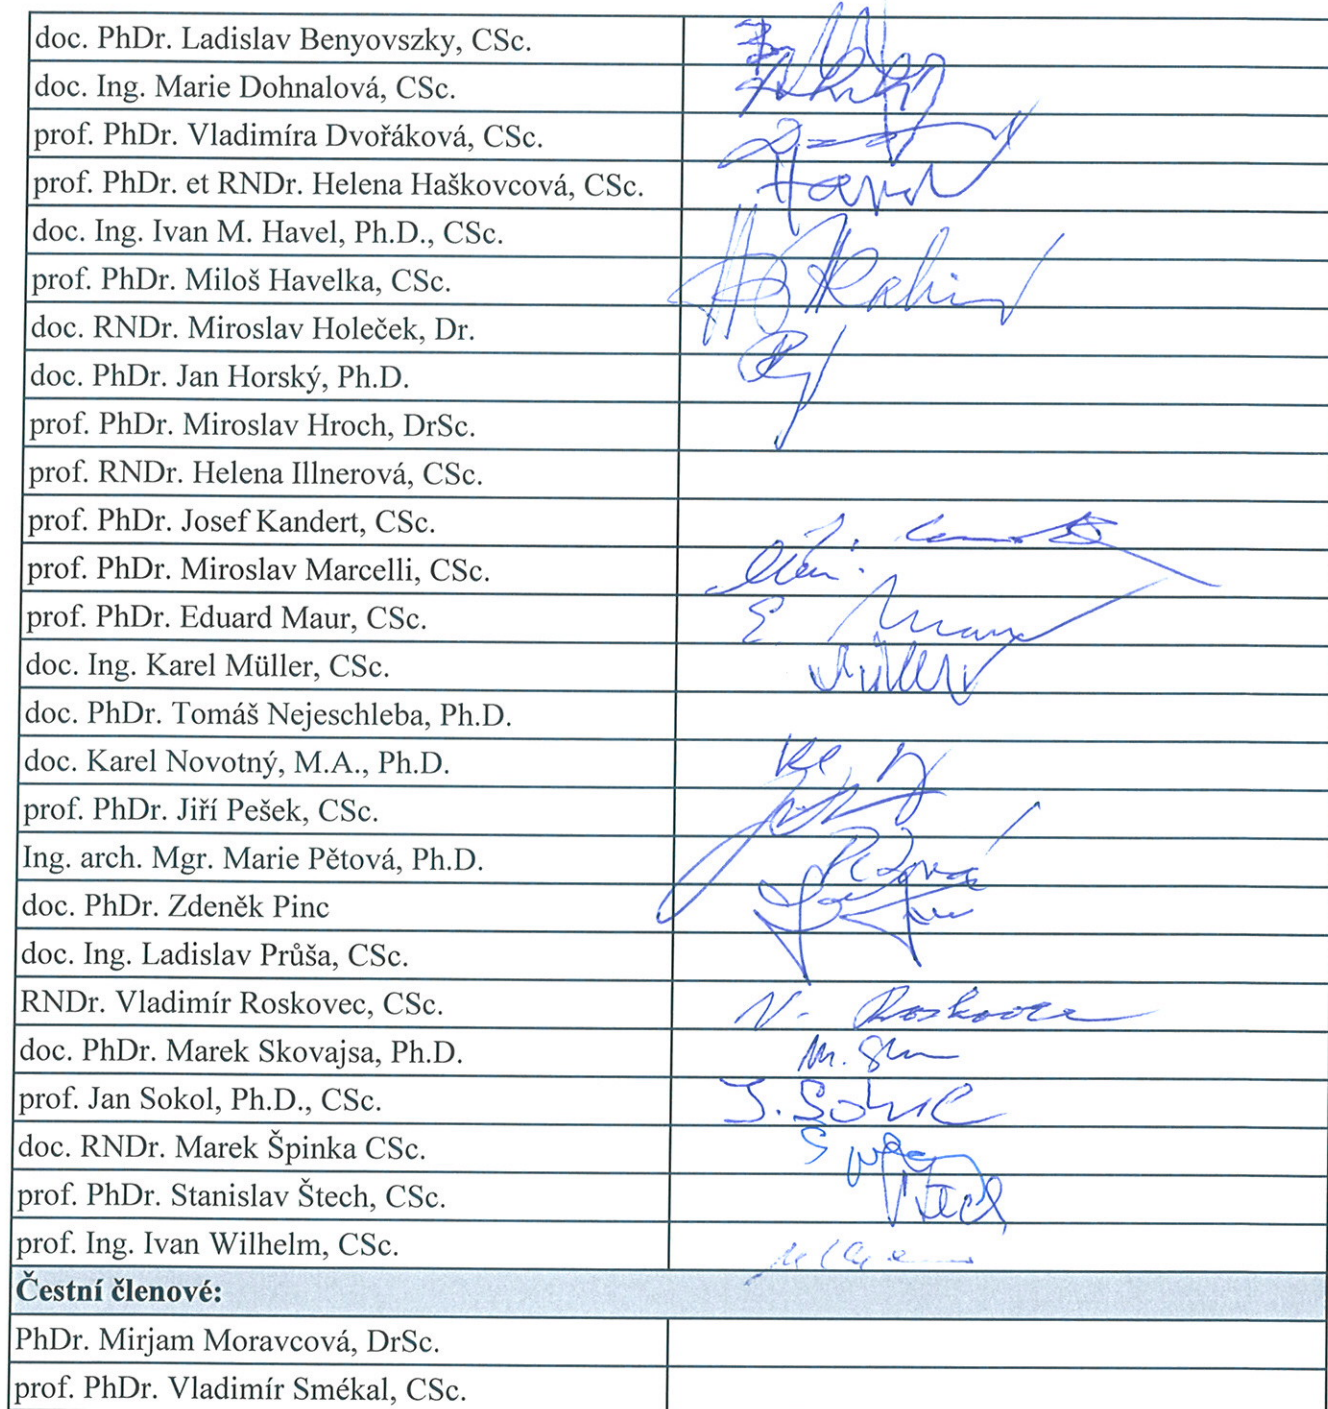 doc. PhDr. Ladislav Benyovszky, CSc.
doc. Ing. Marie Dohnalová, CSc.
prof. PhDr. Vladimíra Dvořáková, CSc.
prof. PhDr. et RNDr. Helena Haškovcová, CSc.
doc. Ing. Ivan M. Havel, Ph.D., CSc.
prof. PhDr. Miloš Havelka, CSc.
doc. RNDr. Miroslav Holeček, Dr.
doc. PhDr. Jan Horský, Ph.D.
prof. PhDr. Miroslav Hroch, DrSc.
prof. RNDr. Helena Illnerová, CSc.
prof. PhDr. Josef Kandert, CSc.
prof. PhDr. Miroslav Marcelli, CSc.
prof. PhDr. Eduard Maur, CSc.
doc. Ing. Karel Müller, CSc. Müller
doc. PhDr. Tomáš Nejeschleba, Ph.D.
doc. Karel Novotný, M.A., Ph.D.
prof. PhDr. Jiří Pešek, CSc.
Ing. arch. Mgr. Marie Pětová, Ph.D.
doc. PhDr. Zdeněk Pinc
doc. Ing. Ladislav Průša, CSc.
RNDr. Vladimír Roskovec, CSc. V. Roskovec
doc. PhDr. Marek Skovajsa, Ph.D.
prof. Jan Sokol, Ph.D., CSc. J. Sokol
doc. RNDr. Marek Špinka CSc.
prof. PhDr. Stanislav Štech, CSc.
prof. Ing. Ivan Wilhelm, CSc.
Čestní členové:
PhDr. Mirjam Moravcová, DrSc.
prof. PhDr. Vladimír Smékal, CSc.